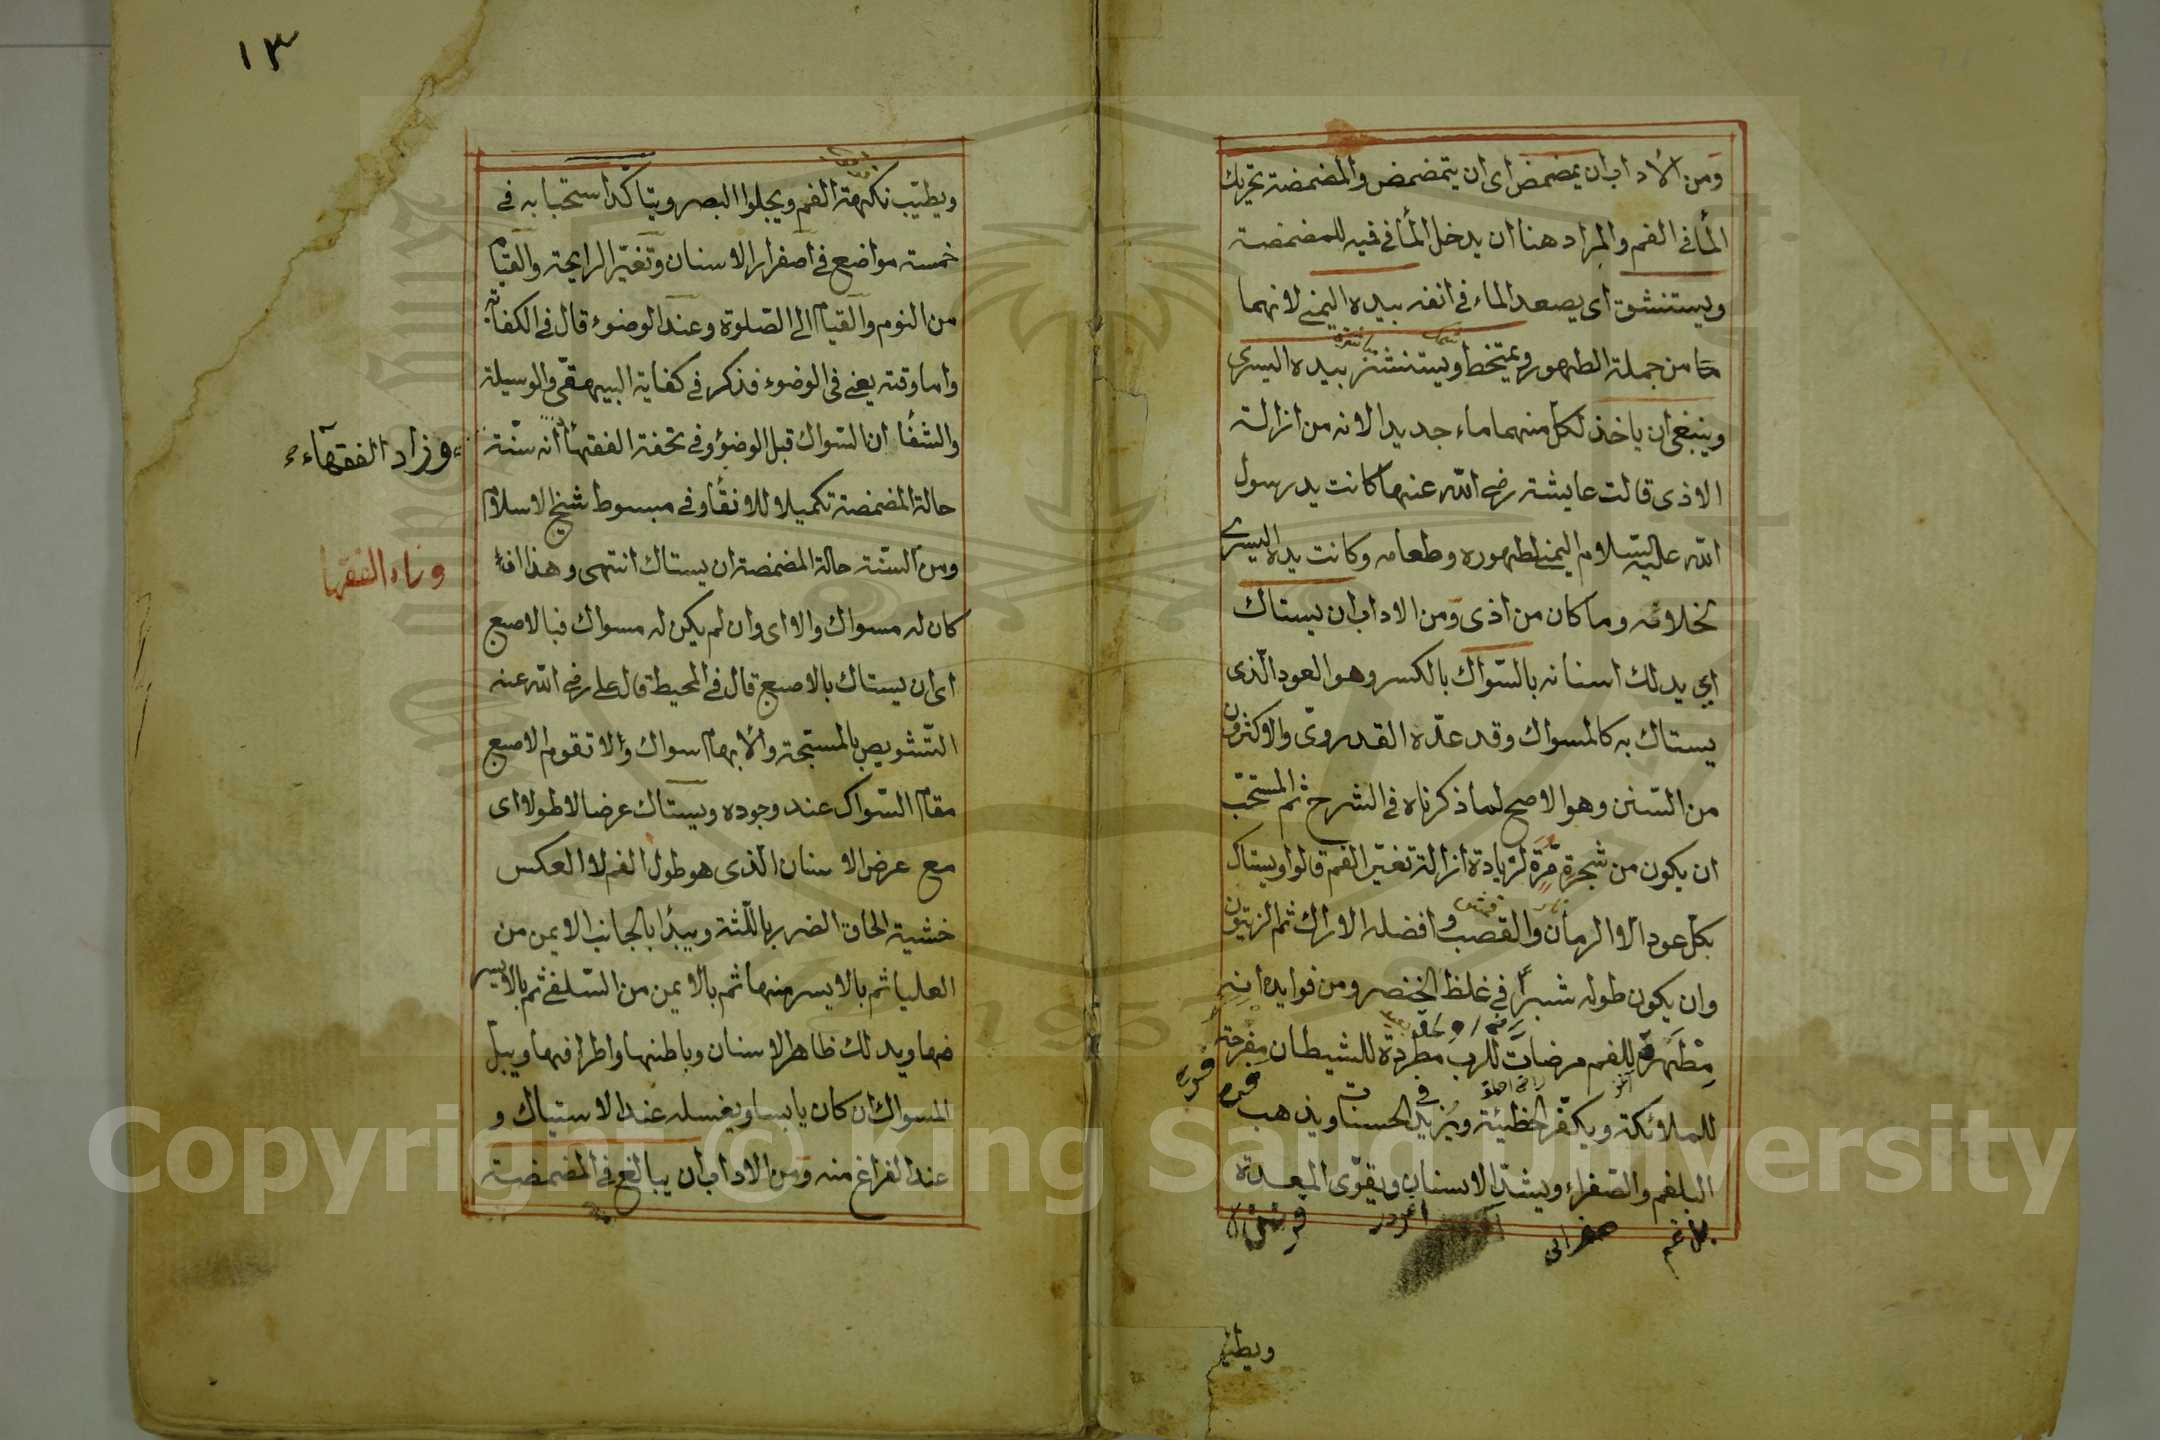 ومن الأداب ان يمضمض اى ان يتمضمض والمضمضة تحريك
المأ فى الفم والمراد هنا ان يدخل المأ فى فيه للمضمضة
ويستنشق اى يصعد الماء فى انفه بيده اليمنى لانهما
من جملة الطهور ويمتخط ويستنثر بيده اليسرى
وينبغى ان ياخذ لكل منهما ماء جديدا لانه من ازالة
الاذى قالت عايشة رضى الله عنها كانت يد رسول
الله عليه السلام اليمنى لطهوره وطعامه وكانت يده اليسرى
لخلائه وما كان من اذى ومن الاداب ان يستاك
اي يدلك اسنانه بالسّواك بالكسر وهو العود الّذى
يستاك به كالمسواك وقد عدّه القدورىّ والاكثرون
من السّنن وهو الاصح لما ذكرناه فى الشرح ثم المستحبّ
ان يكون من شجرةٍ مُرّةٍ لزيادة ازالة تغيّر الفم قالوا ويستاك
بكلّ عود الّا الرمان والقصب وافضله الاراك ثم الزيتون
وان يكون طوله شبرًا فى غلظ الخنصر ومن فوايده انه
مِطْهَرة للفم مرضات للرب مطردة للشيطان مفرحة
للملائكة ويكفّر الخطيئة ويزيد فى الحسنات ويذهب
البلغم والصّفراء ويشدّ الاسنان ويقوّى المعدة
بلغم
صفراى
ويطيّب
١٣
ويطيّب نكهة الفم ويجلوا البصر ويتاكّد استحبابه فى
خمسة مواضع فى اصفرار الاسنان وتغيّر الرايحة والقيام
من النوم والقيام الى الصّلوة وعند الوضوء قال فى الكفاية
واما وقته يعنى فى الوضوء فذكر فى كفاية البيهقىّ والوسيلة
والشفأ ان السّواك قبل الوضوء وفى تحفة الفقهأ انه سنّة
وزاد الفقهآء
حالة المضمضة تكميلا للانقأ وفى مبسوط شيخ الاسلام
وزاد الفقها
ومن السّنة حالة المضمضة ان يستاك انتهى وهذا اذا
كان له مسواك والا اى وان لم يكن له مسواك فبالاصبع
اى ان يستاك بالاصبع قال فى المحيط قال على رضى الله عنه
التّشويص بالمسبّحة والابهام سواك ولا تقوم الاصبع
مقام السّواك عند وجوده ويستاك عرضا لا طولا اى
مع عرض الاسنان الّذى هو طول الفم لا العكس
خشية الحاق الضرر باللّثة ويبدأ بالجانب الايمن من
العليا ثم بالايسر منها ثم بالايمن من السّلفى ثم بالايسر
منها ويدلك ظاهر الاسنان وباطنها واطرافها ويبلّ
المسواك ان كان يابسا ويغسله عند الاستياك و
عند الفراغ منه ومن الاداب ان يبالغ فى المضمضة
Copyright © King Saud University
1957